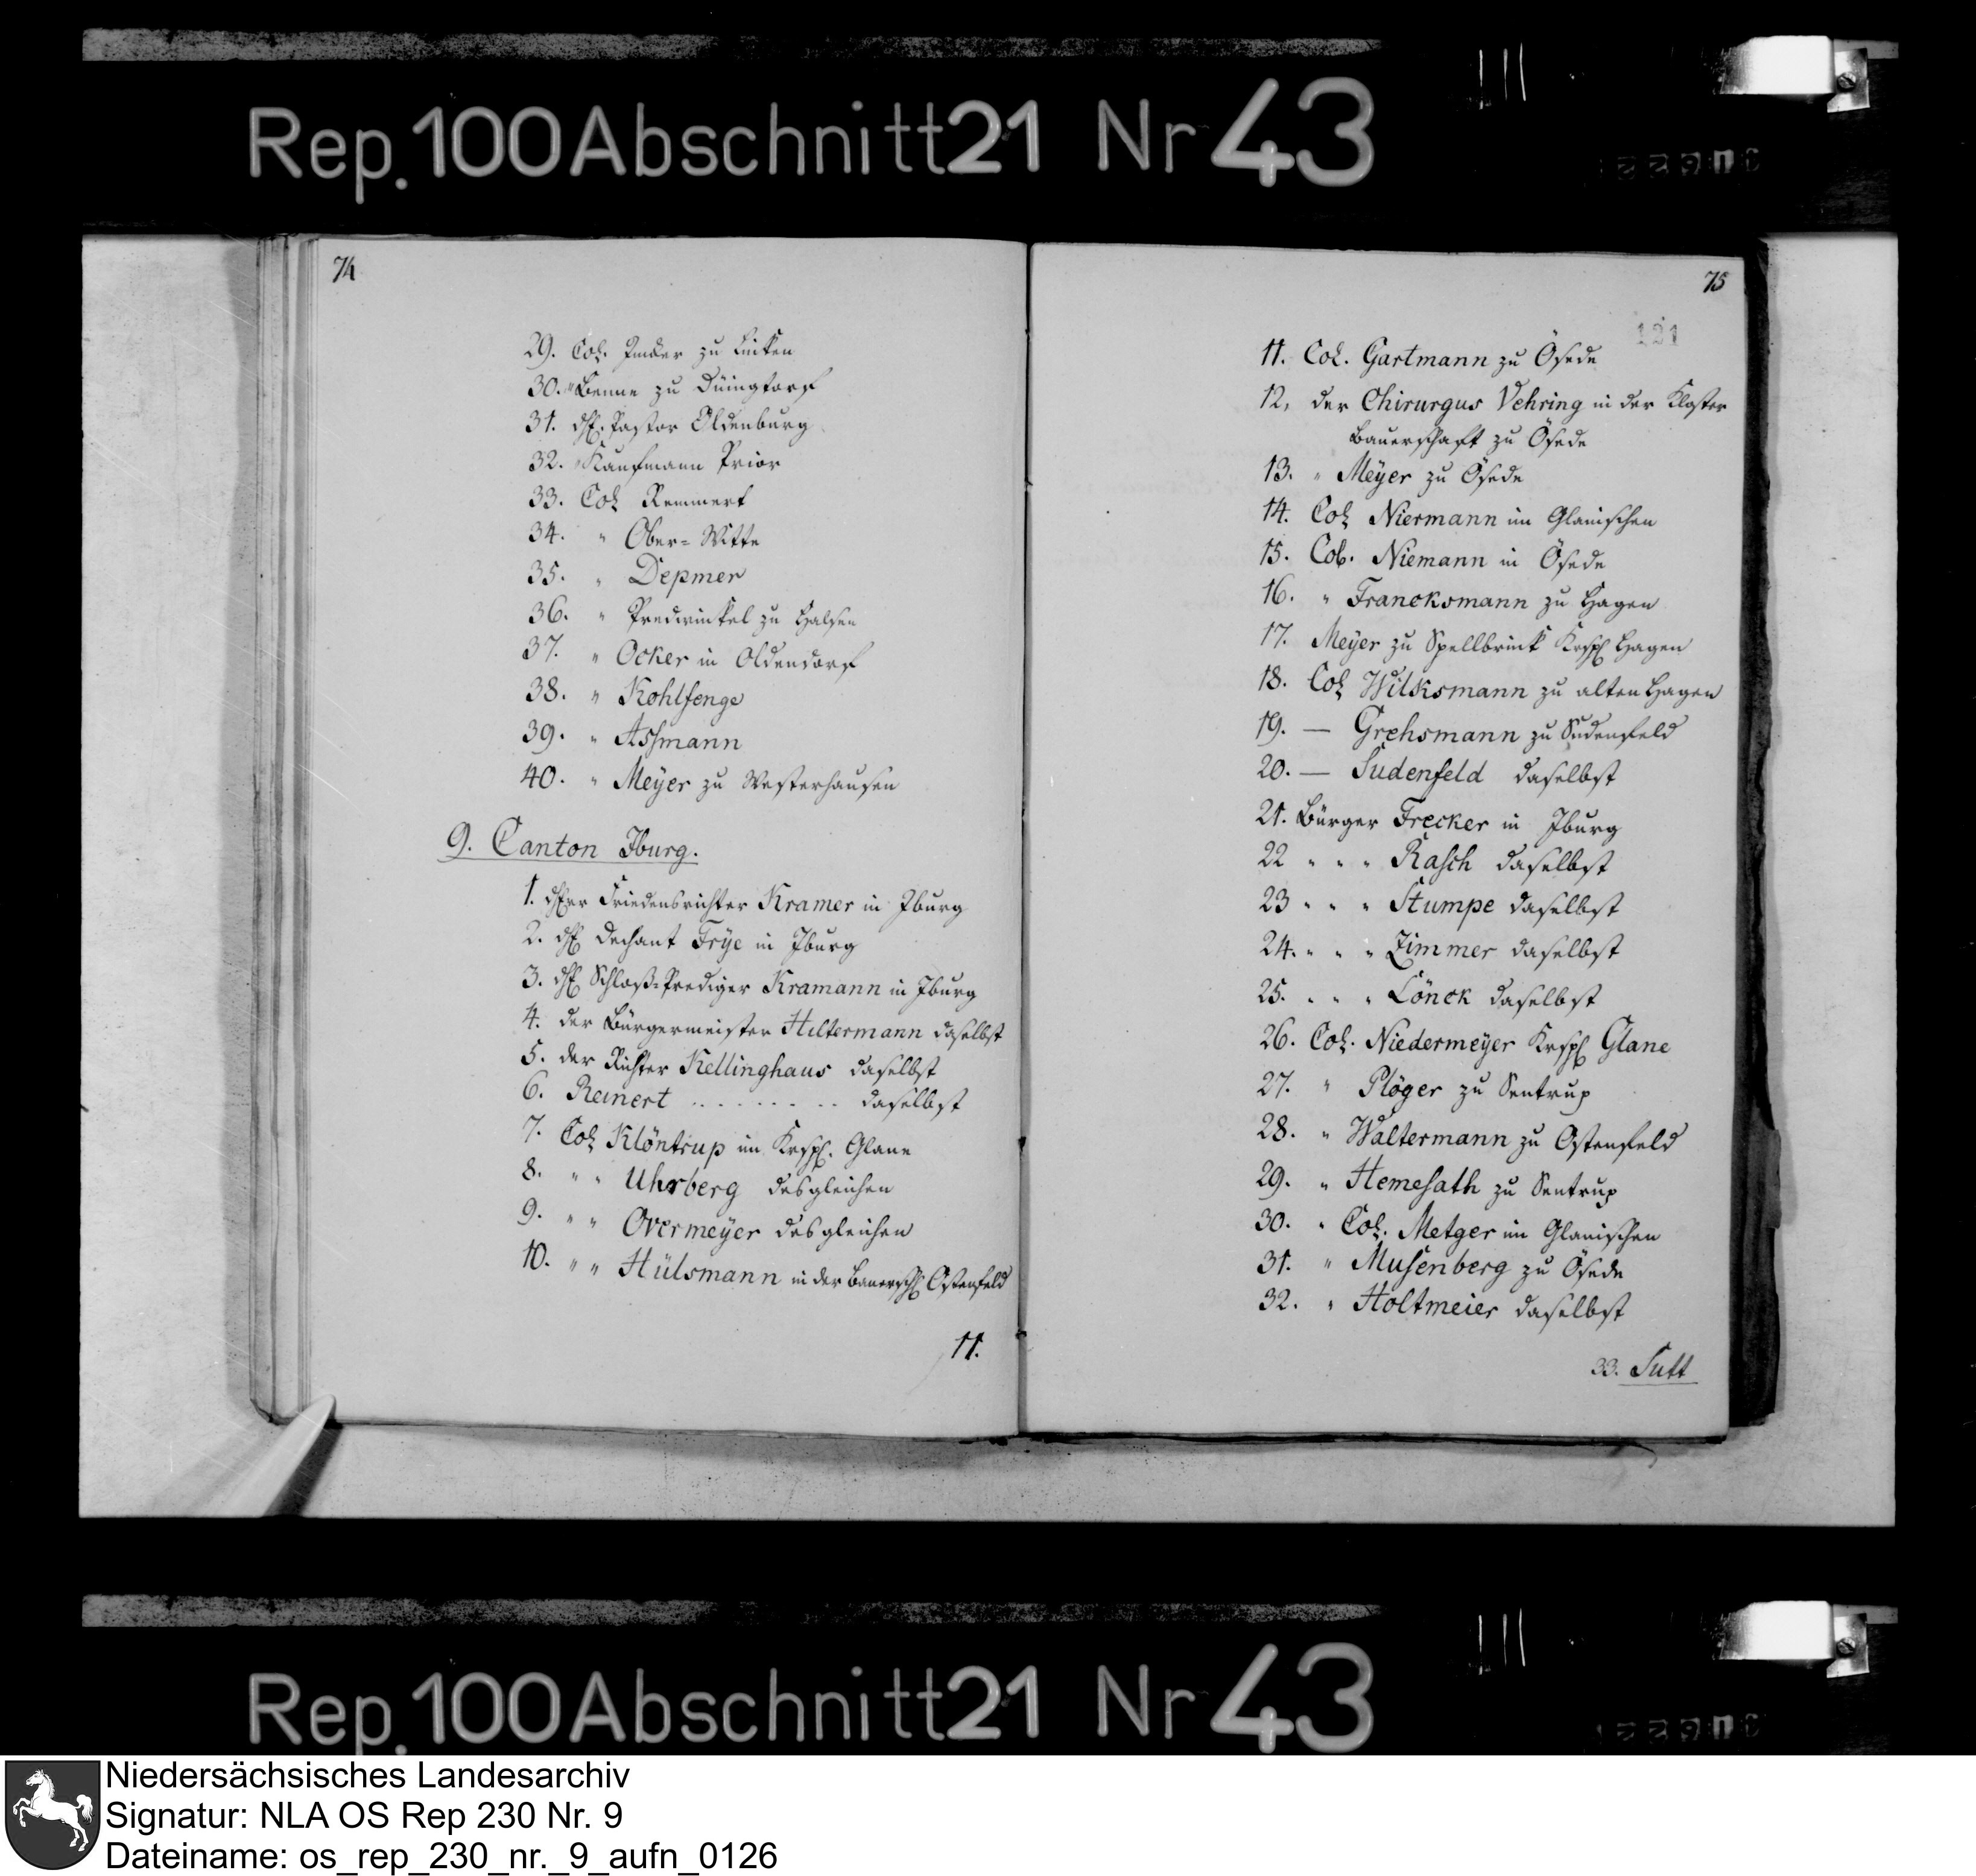 Rep. 100 Abschnitt 21 Nr 43
74
29. Col. zu
30. " Benne zu Düingdorf
31. H. Pastor Oldenburg
32. " Kaufmann Prior
33. Col. Remmert
34. " Ober-Witte
35. " Depmer
36. " Predwinkel zu Halsen
37. " Ocker in Oldendorf
38. " Kohlfenge
39. " Assmann
40. " Meÿer zu Westerhausen
9. Canton Jburg.
1. Herr Friedensrichter Kramer in Jburg
2. H. Dechant Frÿe in Jburg
3. H. Schloß-Prediger Kramann in Jburg
4. der Bürgermeister Hiltermann daselbst
5. der Richter Kellinghaus daselbst
6. Reinert . . . . . . . . daselbst
7. Col. Klöntrup im Krspl. Glane
8. " " Uhrberg desgleichen
9. " " Overmeÿer desgleichen
10. " " Hülsmann in der Bauersch. Ostenfeld
11.
75
121
11. Col. Gartmann zu Ösede
12, der Chirurgus Vehring in der Kloster
Bauerschaft zu Ösede
13. " Meÿer zu Ösede
14. Col. Niermann im Glanischen
15. Col. Niemann in Ösede
16. " Francksmann zu Hagen
17. Meÿer zu Spellbrink Krspl. Hagen
18. Col. Wilksmann zu alten Hagen
19. — Grehsmann zu Sudenfeld
20. — Sudenfeld daselbst
21. Bürger Frecker in Jburg
22 " " " Rasch daselbst
23 " " " Stumpe daselbst
24. " " " Zimmer daselbst
25. " " " Lönck daselbst
26. Col. Niedermeÿer Krspl. Glane
27. " Plöger zu Sentrup
28. " Waltermann zu Ostenfeld
29. " Hemesath zu Sentrup
30. " Col. Metger im Glanischen
31. " Musenberg zu Ösede
32. " Holtmeier daselbst
33. Sutt
Rep. 100 Abschnitt 21 Nr 43
Niedersächsisches Landesarchiv
Signatur: NLA OS Rep 230 Nr. 9
Dateiname: os_rep_230_nr._9_aufn_0126